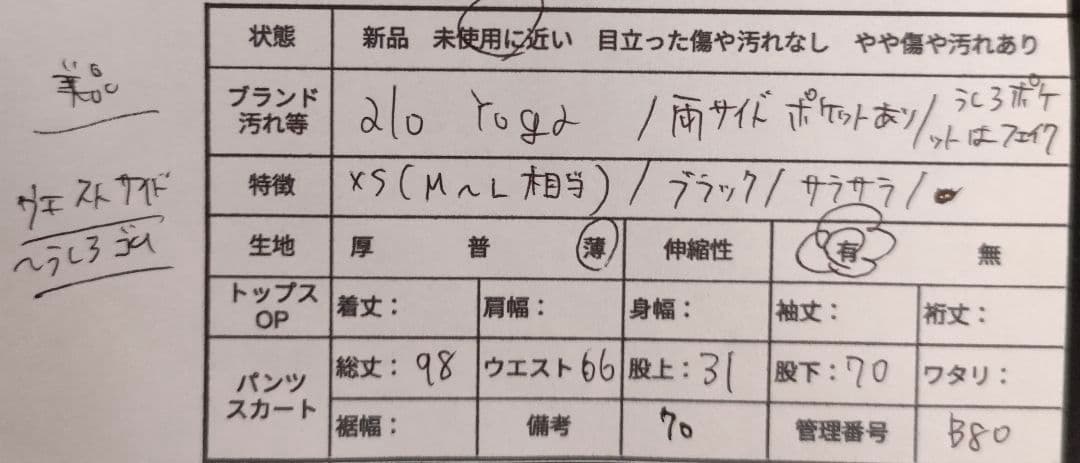 美品
ウエストサイド
〜うしろゴム
状態 新品 未使用に近い 目立った傷や汚れなし やや傷や汚れあり
ブランド 汚れ等 alo Yoga / 両サイドポケットあり / うしろポケットはフェイク
特徴 XS (M〜L相当) / ブラック / サラサラ /
生地 厚 普 薄 伸縮性 有 無
トップス OP 着丈： 肩幅： 身幅： 袖丈： 裄丈：
パンツ スカート 総丈：98 ウエスト66 股上：31 股下：70 ワタリ：
裾幅： 備考 70 管理番号 B80